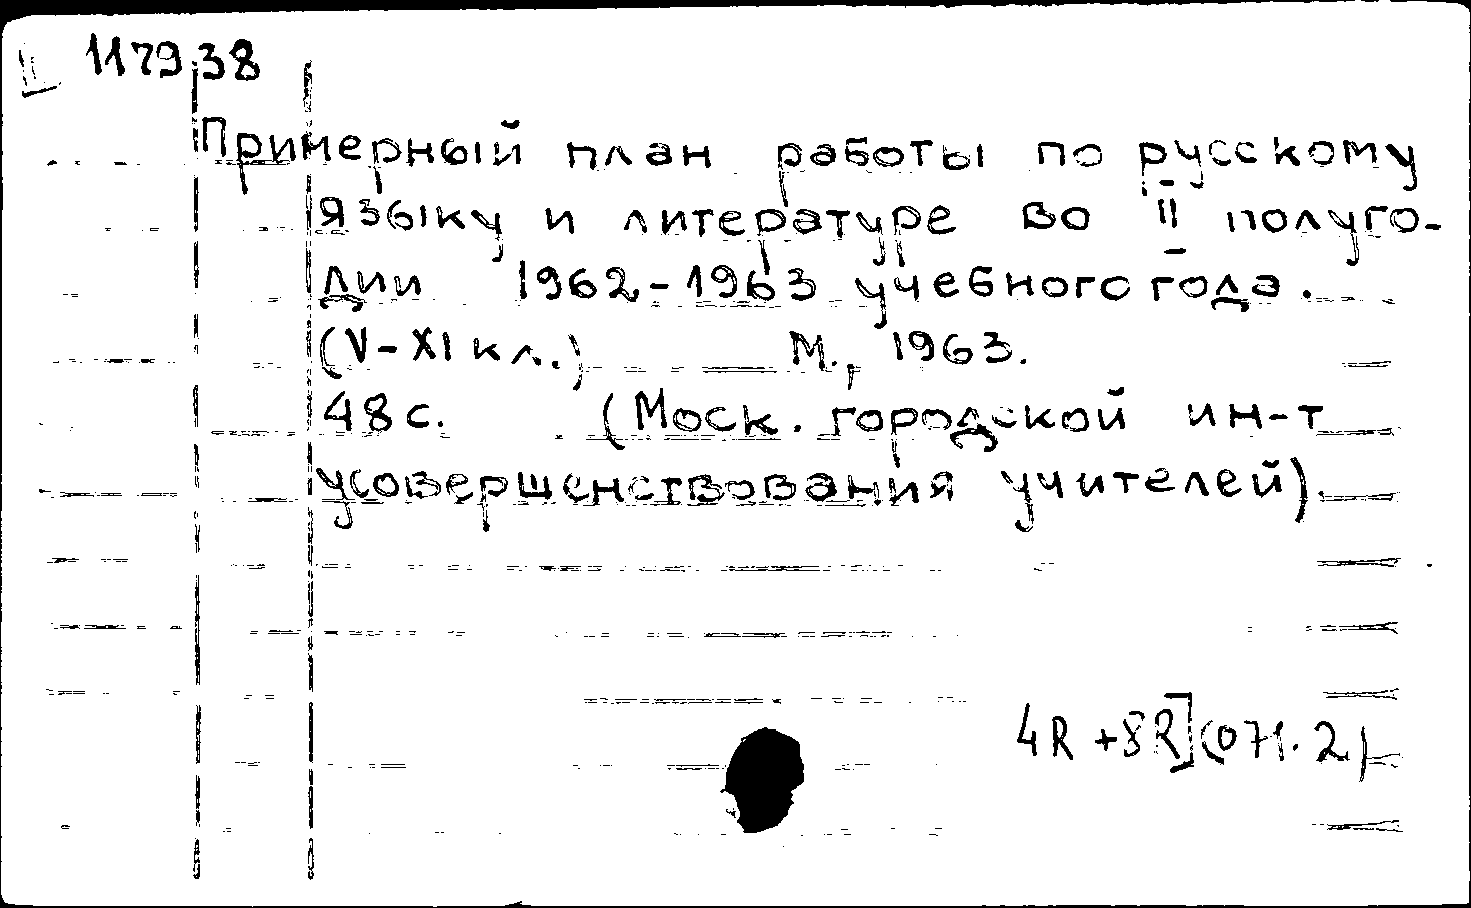 II 117938
Примерный план работы по русскому
языку и литературе во II полуго-
дии 1962-1963 учебного года.
(V-XI кл.) М., 1963.
48 с. (Моск. городской ин-т
усовершенствования учителей).
4R+8R](071.2)